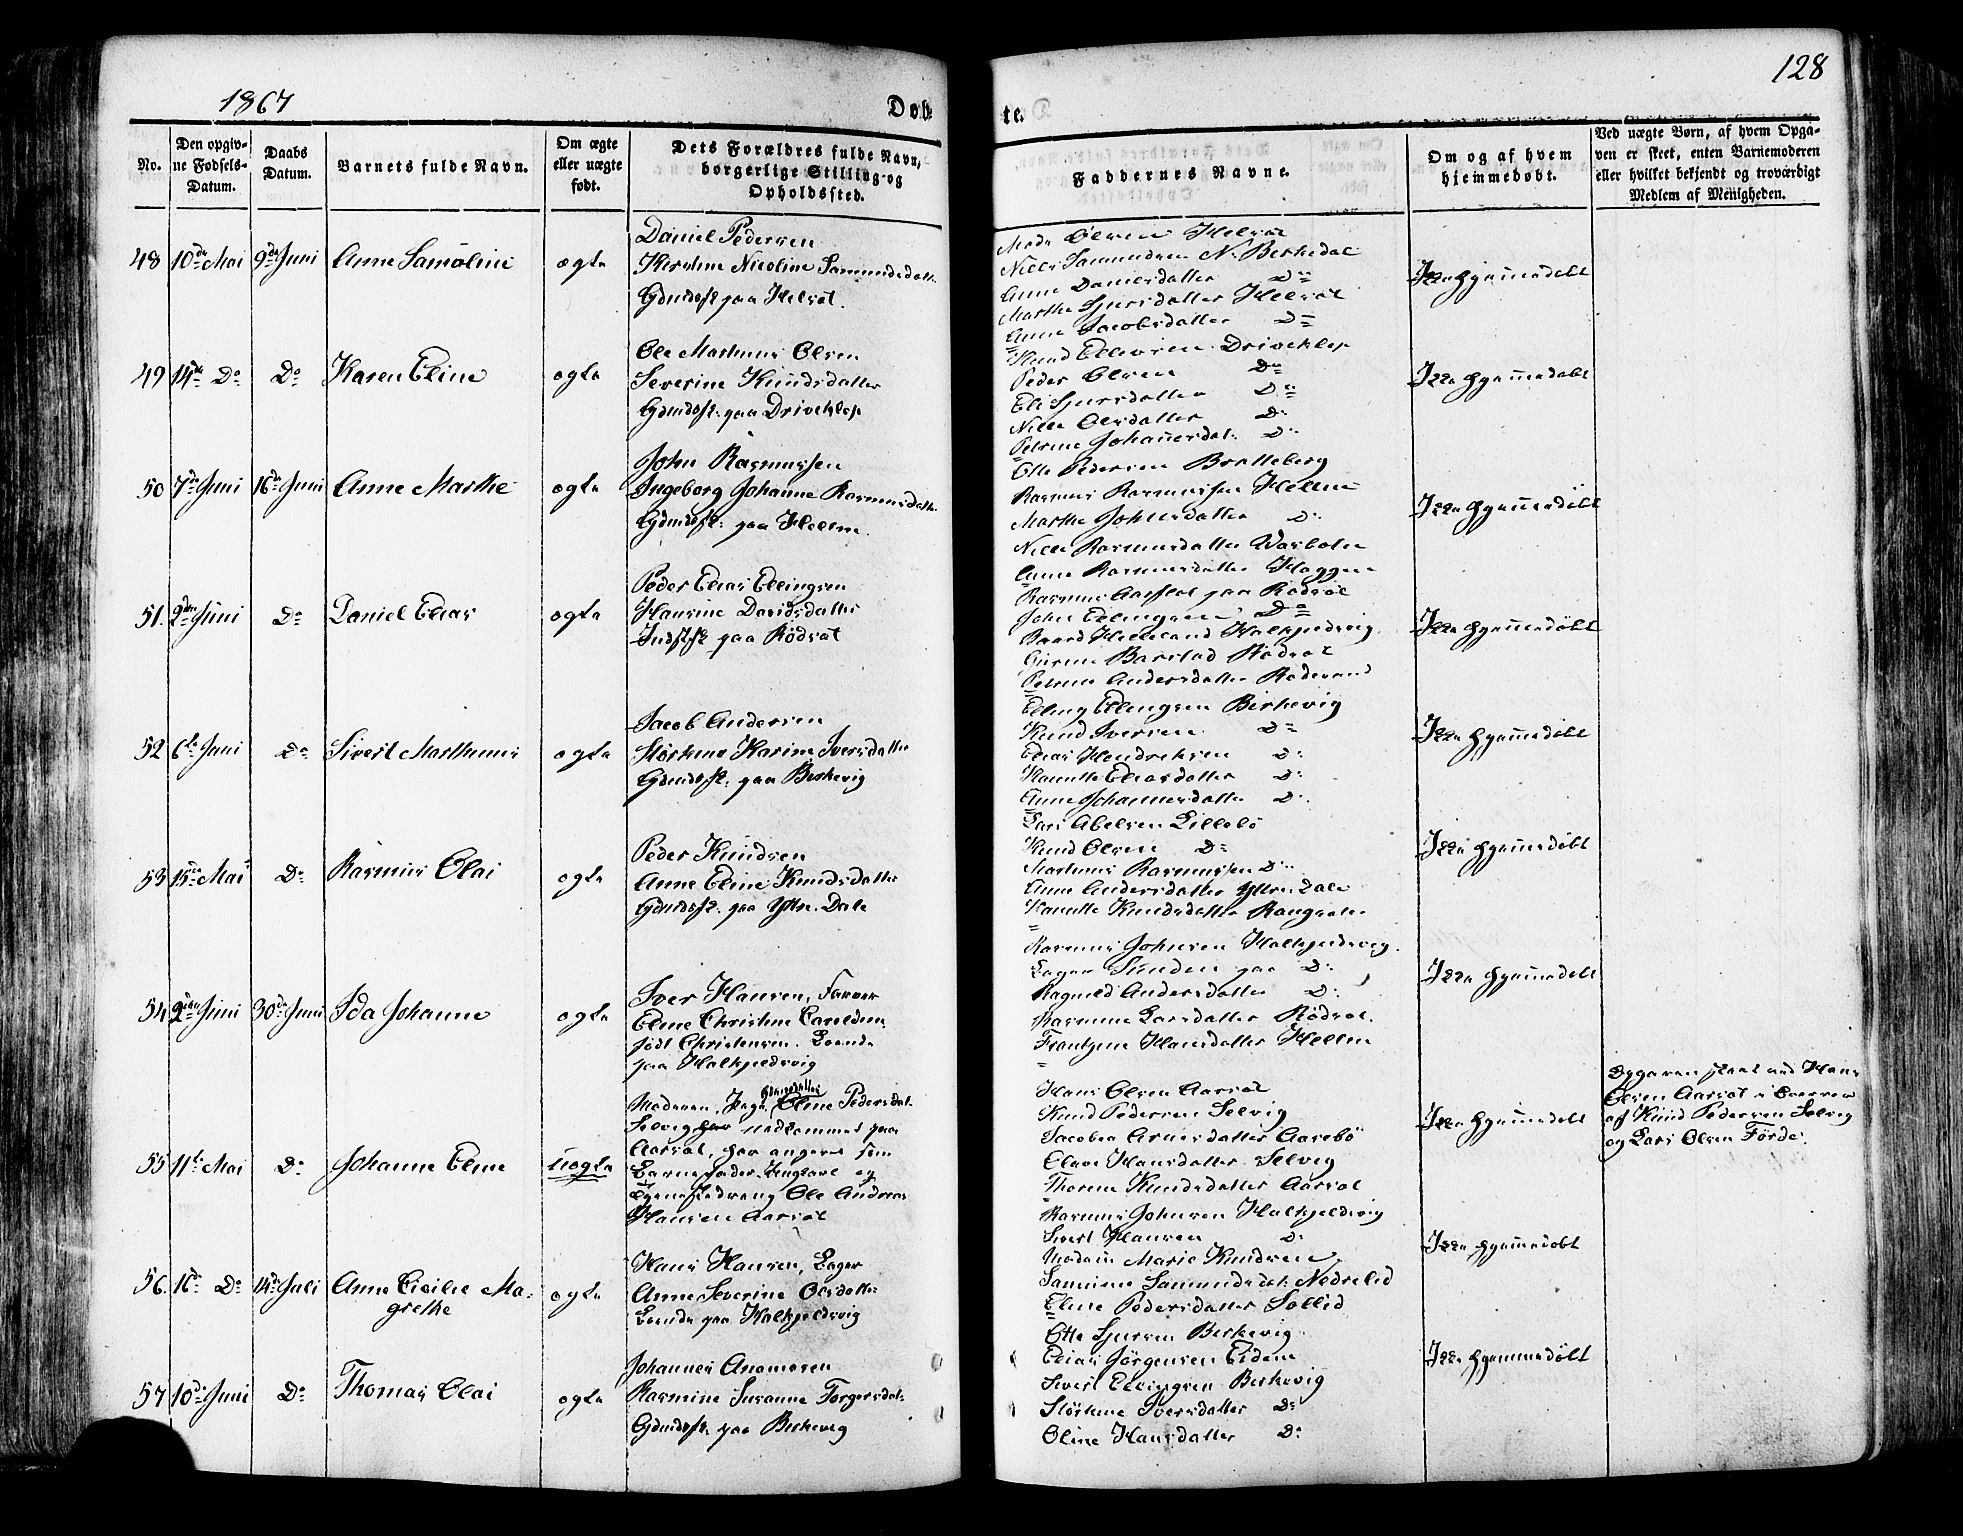 1867
Døb
te.
128
No.
Den opgiv-
ne Fødsels-
Datum.
Daabs
Datum.
Barnets fulde Navn.
Om ægte
eller uægte
født.
Dets Forældres fulde Navn,
borgerlige Stilling og
Opholdssted.
Faddernes Navne.
Om og af hvem
hjemmedøbt.
Ved uægte Børn, af hvem Opga-
ven er skeet, enten Barnemoderen
eller hvilket bekjendt og troværdigt
Medlem af Menigheden.
48 10de Mai 9de Juni Anne Samoline ægte
Daniel Pedersen
Nicoline Samundsdatter
Gdmdsf. paa Helsøt.
Mads Olsen Helsøt
Niels Samundsen N. Birkedal
Anne Danielsdatter Do
Marthe Sjursdatter Helsøt
Anne Jacobsdatter Do
Ikke hjemmedøbt
49 14de Do Do Karen Eline ægte
Ole Martinus Olsen
Severine Knudsdatter
Gdmdsf. paa Driveklep
Knud Ellevsen Driveklep
Peder Olsen Do
Eli Sjursdatter Do
Nille Olsdatter Do
Petrine Johannesdat. Do
Ikke hjemmedøbt
50 7de Juni 16de Juni Anne Marthe ægte
John Rasmussen
Ingeborg Johanne Rasmusdatter
Gdmdsf. paa Hellem.
Otte Pedersen Bratteberg
Rasmus Rasmussen Hellem
Marthe Johnsdatter Do
Nille Rasmusdatter
Anne Rasmusdatter
Ikke hjemmedøbt
51. 2den Juni Do Daniel Elias ægte
Peder Elias Ellingsen
Hansine Davidsdatter
Indstf. paa Rødsøt
Rasmus Aarsæt paa Rødsøt
John Ellingsen Do
Baard Halkjeldsvig
Barstad Rødsøt
Petrine Andersdatter
Ikke hjemmedøbt
52 6te Juni Do Sivert Marthinus ægte
Jacob Andersen
Størkine Karine Iversdatter
Gdmdsf. paa Birkevig
Elling Ellingsen Birkevig
Knud Iversen Do
Elias Hendriksen Do
Hanette Eliasdatter Do
Anne Johannesdatter Do
Ikke hjemmedøbt
53 15de Mai Do Rasmus Olai ægte
Peder Knudsen
Anne Eline Knudsdatter
Gdmdsf. paa Yttre Dale
Lars Abelsen Lillebø
Knud Olsen Do
Martinus Rasmussen Do
Anne Andersdatter Yttre Dale
Hanette Knudsdatter
Ikke hjemmedøbt
54 2den Juni 30de Juni Ida Johanne ægte
Iver Hansen, Farver
Eline Christine
født Christensen. Boende
paa Halkjeldsvig
Rasmus Johnsen Halkjeldsvig.
Bager Sunden paa Do
Ragnild Andersdatter Do
Rasmine Larsdatter Rødsøt.
Frantzine Hansdatter Hellem
Ikke hjemmedøbt
55 11te Mai Do Johanne Eline uægte
Moderen, Pige, Eline Pedersdat.
Selvig nedkommet paa
Aarsøt, har angivet som
Barnefader Ungkarl og
Ole Andreas
Hansen Aarsøt
Hans Olsen Aarsøt
Knud Pedersen Selvig
Jacobea Arnesdatter Aarebø
Olave Hansdatter Selvig
Thorine Knudsdatter Aarsøt
Ikke hjemmedøbt
Opgaven skeet ved Hans
Olsen Aarsøt i Overvær
af Knud Pedersen Selvig
og Lars Olsen Førde.
56. 16de Do 14de Juli Anne Cicilie Ma-
grethe
ægte
Hans Hansen, Bager
Anne Severine Olsdatter
Boende paa Halkjeldsvig
Rasmus Johnsen Halkjeldsvig
Sivert Hansen Do
Madam Marie Knudsen
Samine Samundsdat. Nedrelid
Eline Pedersdatter Sollid
Ikke hjemmedøbt
57 10de Juni Do Thomas Olai ægte
Johannes
Rasmine Susanne Torgersdat.
Gdmdsf. paa Birkevig
Otte Sjursen Birkevig
Elias Jørgensen Eidem
Sivert Ellingsen Birkevig
Størkine Iversdatter Do
Oline Hansdatter Do
Ikke hjemmedøbt